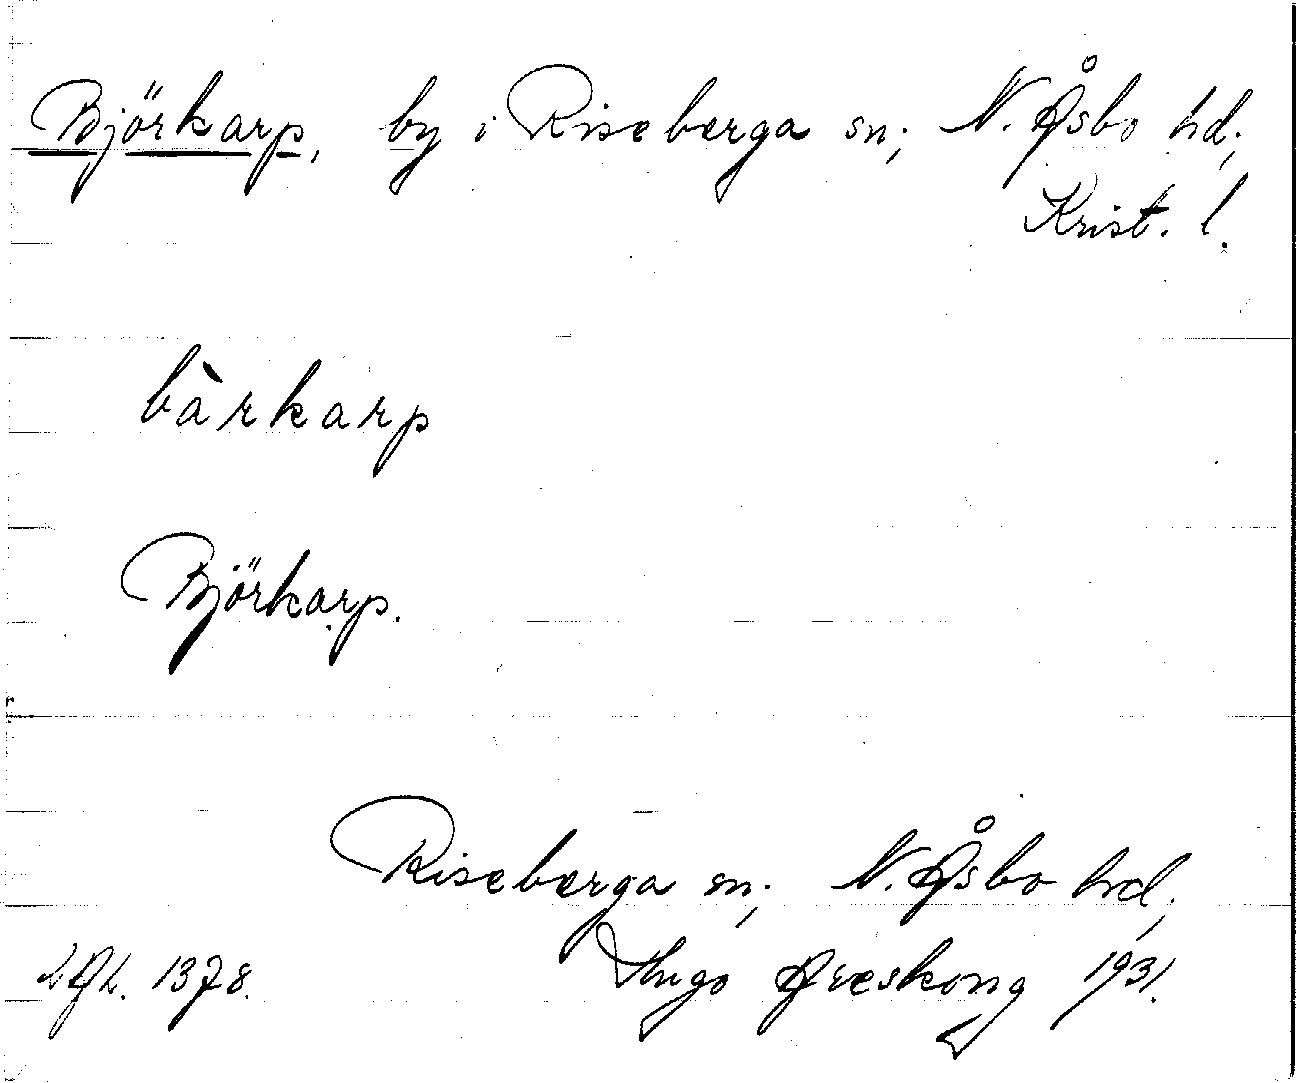 Björkarp, by i Riseberga sn; N. Åsbo hd;
Krist. l.
bàrkarp
Björkarp.
Riseberga sn; N. Åsbo hd;
Hugo Areskoug 1931.
LAL. 1378.